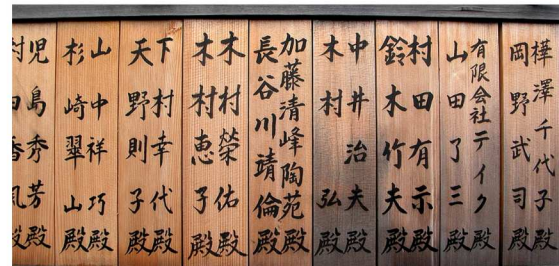 樺澤千代子殿
岡野武司殿
有限会社テイク殿
山田了三殿
村田有示殿
鈴木竹夫殿
中井治夫殿
木村弘殿
加藤清峰陶苑殿
長谷川靖倫殿
木村榮佑殿
木村恵子殿
下村幸代殿
天野則子殿
山中祥巧殿
杉崎翠山殿
児島秀芳殿
村田香風殿